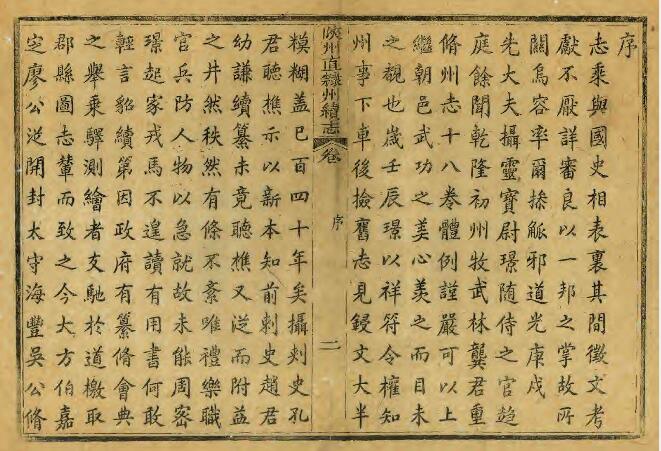 序
志乘與國史相表裏其間徵文考
獻不厭詳審良以一邦之掌故所
關烏容率爾操觚邪道光庚戌
先大夫攝靈寶尉璟随侍之官趨
庭餘聞乾隆初州牧武林龔君重
脩州志十八卷體例謹嚴可以上
繼朝邑武功之美心羨之而目未
之覩也歲壬辰璟以祥符令權知
州事下車後撿舊志見鋟文大半
陝州直隸州續志
卷
序
一
糢糊蓋已百四十年矣攝刺史孔
君聽樵示以新本知前刺史趙君
幼謙續纂未竟聽樵又從而附益
之井然秩然有條不紊唯禮樂職
官兵防人物以急就故未能周密
璟起家戎馬不遑讀有用書何敢
輕言貂續第因政府有纂脩會典
之舉乗驛測繪者交馳於道檄取
郡縣圖志輦而致之今大方伯嘉
定廖公從開封太守海豐吳公脩